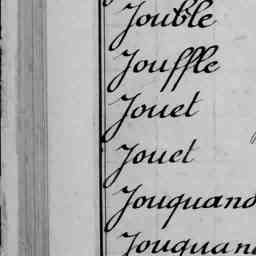 Jouble
Jouffle
Jouet
Jouet
Jouquand
Jouquand